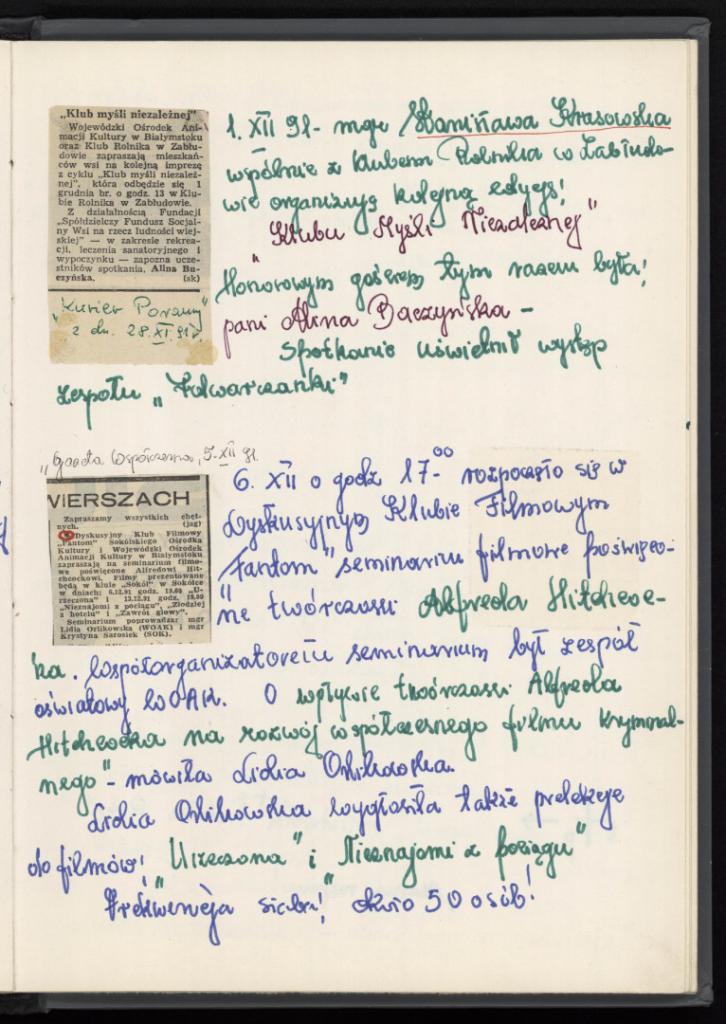 „Klub myśli niezależnej"
Wojewódzki Ośrodek Ani-
macji Kultury w Białymstoku
oraz Klub Rolnika w Zabłu-
dowie zapraszają mieszkań-
ców wsi na kolejną imprezę
z cyklu „Klub myśli niezależ-
nej", która odbędzie się 1
grudnia br. o godz. 13 w Klu-
bie Rolnika w Zabłudowie.
Z działalnością Fundacji
„Spółdzielczy Fundusz Socjal-
ny Wsi na rzecz ludności wiej-
skiej" — w zakresie rekrea-
cji, leczenia sanatoryjnego i
wypoczynku — zapozna ucze-
stników spotkania, Alina Ba-
czyńska. (sk)
„Kurier Poranny"
z dn. 28.XI.91r.
1. XII 91 - mgr Stanisława Krasowska
wspólnie z Klubem Rolnika w Zabłudo-
wie organizują kolejną edycję!
"Klubu Myśli Niezależnej"
Honorowym gościem tym razem była!
pani Alina Baczyńska -
Spotkanie uświetnił występ
zespołu „Folwarczanki"
„Gazeta Współczesna, 5.XII 91.
WIERSZACH
Zapraszamy wszystkich chęt-
nych. (jag)
Dyskusyjny Klub Filmowy
„Fantom" Sokólskiego Ośrodka
Kultury i Wojewódzki Ośrodek
Animacji Kultury w Białymstoku
zapraszają na seminarium filmo-
we poświęcone Alfredowi Hit-
chcockowi. Filmy prezentowane
będą w kinie „Sokół" w Sokółce
w dniach: 6.12.91 godz. 19.00 „U-
rzeczona" i 13.12.91 godz. 19.00
„Nieznajomi z pociągu", „Złodziej
z hotelu" i „Zawrót głowy".
Seminarium poprowadzą: mgr
Lidia Orlikowska (WOAK) i mgr
Krystyna Sarosiek (SOK).
6. XII o godz 17-00 rozpoczęło się w
Dyskusyjnym Klubie Filmowym
"Fantom" seminarium filmowe poświęco-
ne twórczości Alfreda Hitchcoc-
ka. Współorganizatorem seminarium był zespół
oświatowy WOAK. O wpływie twórczości Alfreda
Hitchcocka na rozwój współczesnego filmu kryminal-
nego" - mówiła Lidia Orlikowska.
Lidia Orlikowska wygłosiła także prelekcje
do filmów! "Urzeczona" i "Nieznajomi z pociągu"
Frekwencja siebri! około 50 osób!